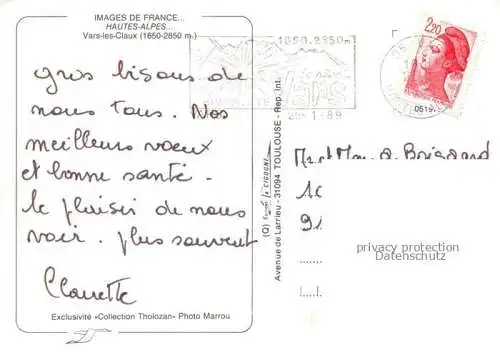 IMAGES DE FRANCE...
HAUTES-ALPES...
Vars-les-Claux (1650-2850 m.)
Gros bisous de
nous tous. Nos
meilleurs vœux
et bonne santé.
le plaisir de nous
voir. plus souvent
Exclusivité «Collection Tholozan» Photo Marrou
1650.2850m
Vars
25-1-89
2,20
05
0519
Avenue de Larrieu - 31094 TOULOUSE - Rep. Int.
Mr et Mme
10
91
privacy protection
Datenschutz